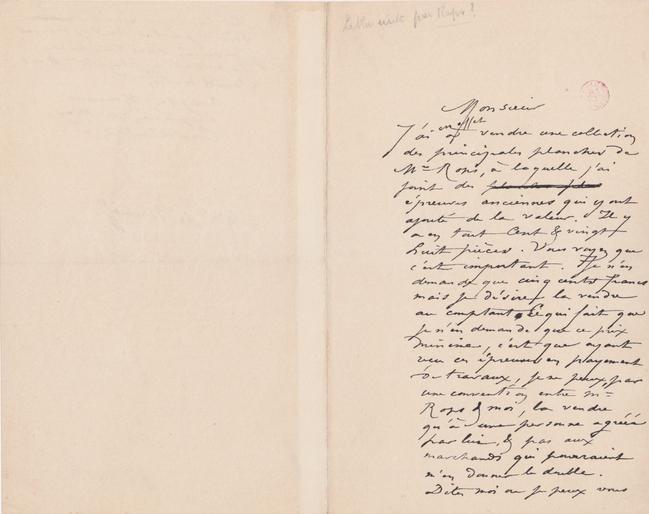 Lettre écrite par Rops?
Monsieur
J'ai en effet à vendre une collection
des principales planches de
Mr Rops, à laquelle j'ai
joint des
épreuves anciennes qui y ont
ajouté de la valeur. Il y
a en tout Cent & vingt
huit pièces. Vous voyez que
c'est important. Je n'en
demande que cinq cents francs
mais je désire la vendre
au comptant. Ce qui fait que
je n'en demande que ce prix
minime, c'est que ayant
reçu ces épreuves en payement
de travaux, je ne peux, par
une convention entre mr
Rops & moi, la vendre
qu'à une personne agréée
par lui, & pas aux
marchands qui pourraient
m'en donner le double.
Dites moi où je peux vous